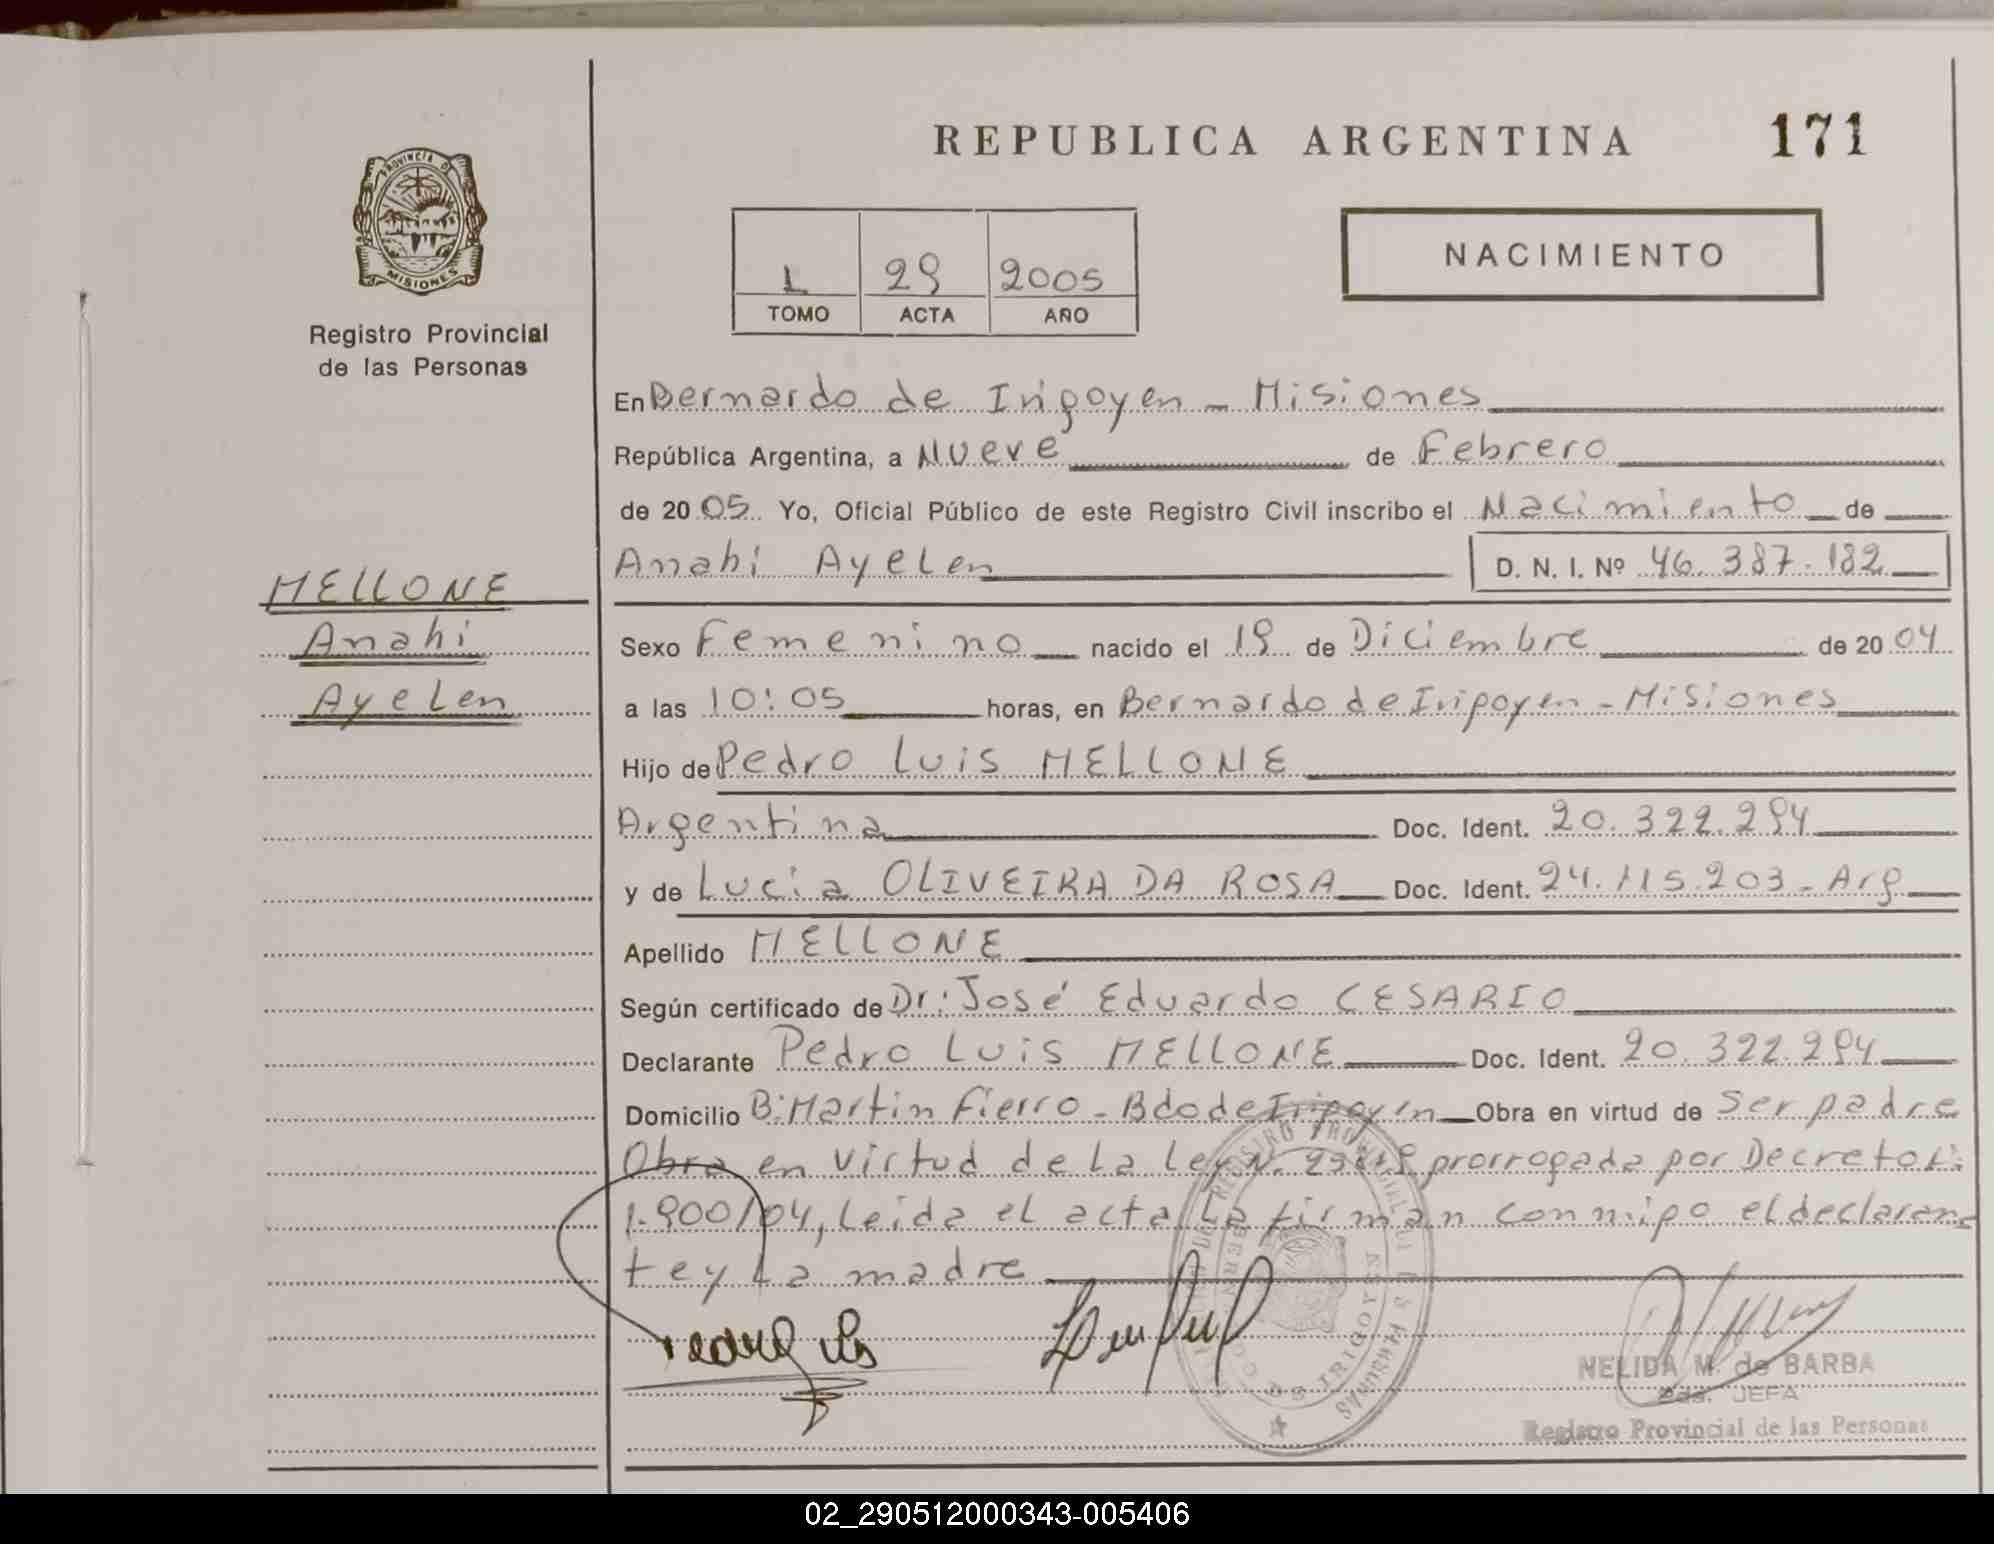 REPUBLICA ARGENTINA 171
PROVINCIA DE
MISIONES
Registro Provincial
de las Personas
1 29 2005
TOMO ACTA AÑO
NACIMIENTO
En Bernardo de Irigoyen - Misiones
República Argentina, a Nueve de Febrero
de 2005 Yo, Oficial Público de este Registro Civil inscribo el Nacimiento de
Anahi Ayelen D. N. I. Nº 46.387.182
MELLONE
Anahi
Ayelen
Sexo Femenino nacido el 19 de Diciembre de 2004
a las 10:05 horas, en Bernardo de Irigoyen - Misiones
Hijo de Pedro Luis MELLONE
Argentina Doc. Ident. 20.322.294
y de Lucia OLIVEIRA DA ROSA Doc. Ident. 24.115.203 - Arg
Apellido MELLONE
Según certificado de Dr: José Eduardo CESARIO
Declarante Pedro Luis MELLONE Doc. Ident. 20.322.294
Domicilio B: Martin Fierro - Bdo de Irigoyen Obra en virtud de Ser padre
Obra en virtud de la Ley N. prorrogada por Decreto
1.900/04, Leida el acta la firman conmigo el declaran
te y la madre
NELIDA M. de BARBA
JEFA
Registro Provincial de las Personas
02_290512000343-005406